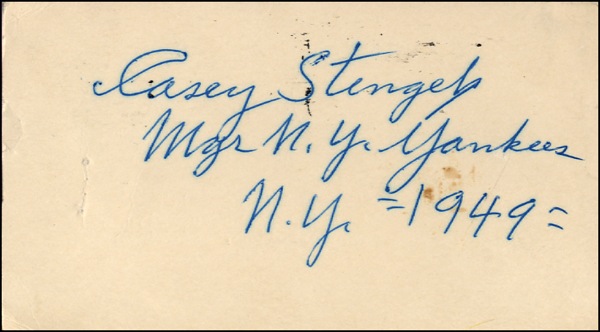 Casey Stengel
Mgr N. Y. Yankees
N. Y. = 1949 =